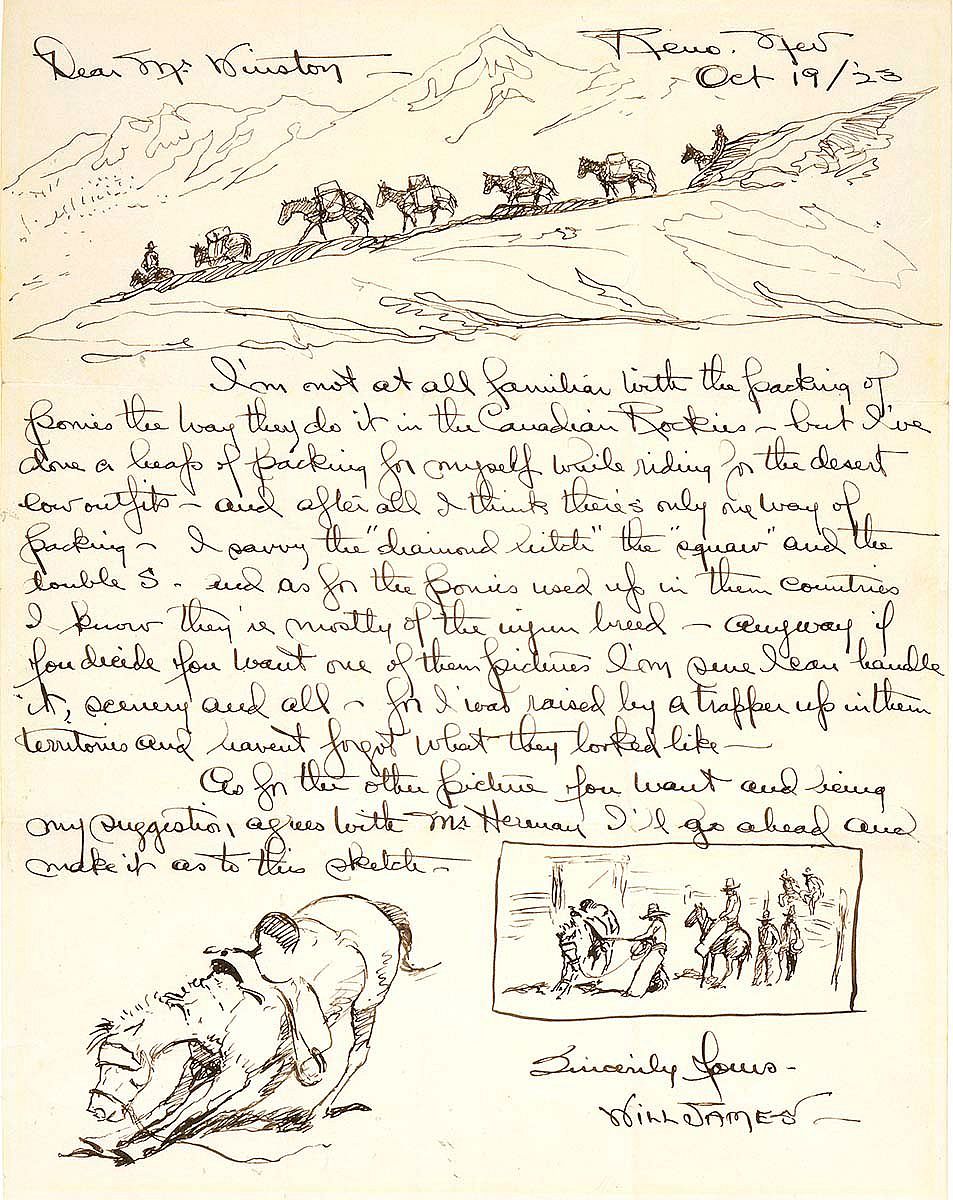 Dear Mr Winston —
Reno. Nev
Oct 19/'23
I'm not at all familiar with the packing of
ponies the way they do it in the Canadian Rockies — but I've
done a heap of packing for myself while riding for the desert
cow outfits — and after all I think there's only one way of
packing — I savvy the "diamond hitch" the "squaw" and the
double S - and as for the ponies used up in them countries
I know they're mostly of the injun breed — anyway if
you decide you want one of them pictures I'm sure I can handle
it, scenery and all — for I was raised by a trapper up in them
territories and havent forgot what they looked like —
As for the other picture you want and being
my suggestion, agrees with Mr Herman I'll go ahead and
make it as to this sketch —
Sincerily Yours -
WILL JAMES —